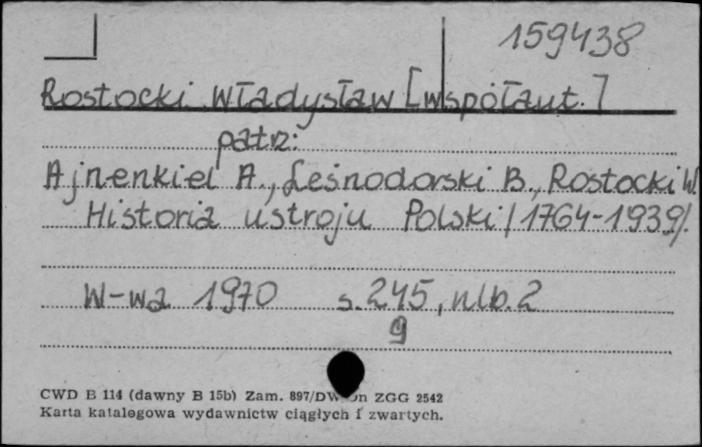 159438
Rostocki Władysław [współaut.]
patrz:
Ajnenkiel A., Leśnodorski B., Rostocki W.
Historia ustroju Polski /1764-1939/.
W-wa 1970 s. 245, nlb. 2
9
CWD B 114 (dawny B 15b) Zam. 897/DW ZGG 2542
Karta katalogowa wydawnictw ciągłych i zwartych.